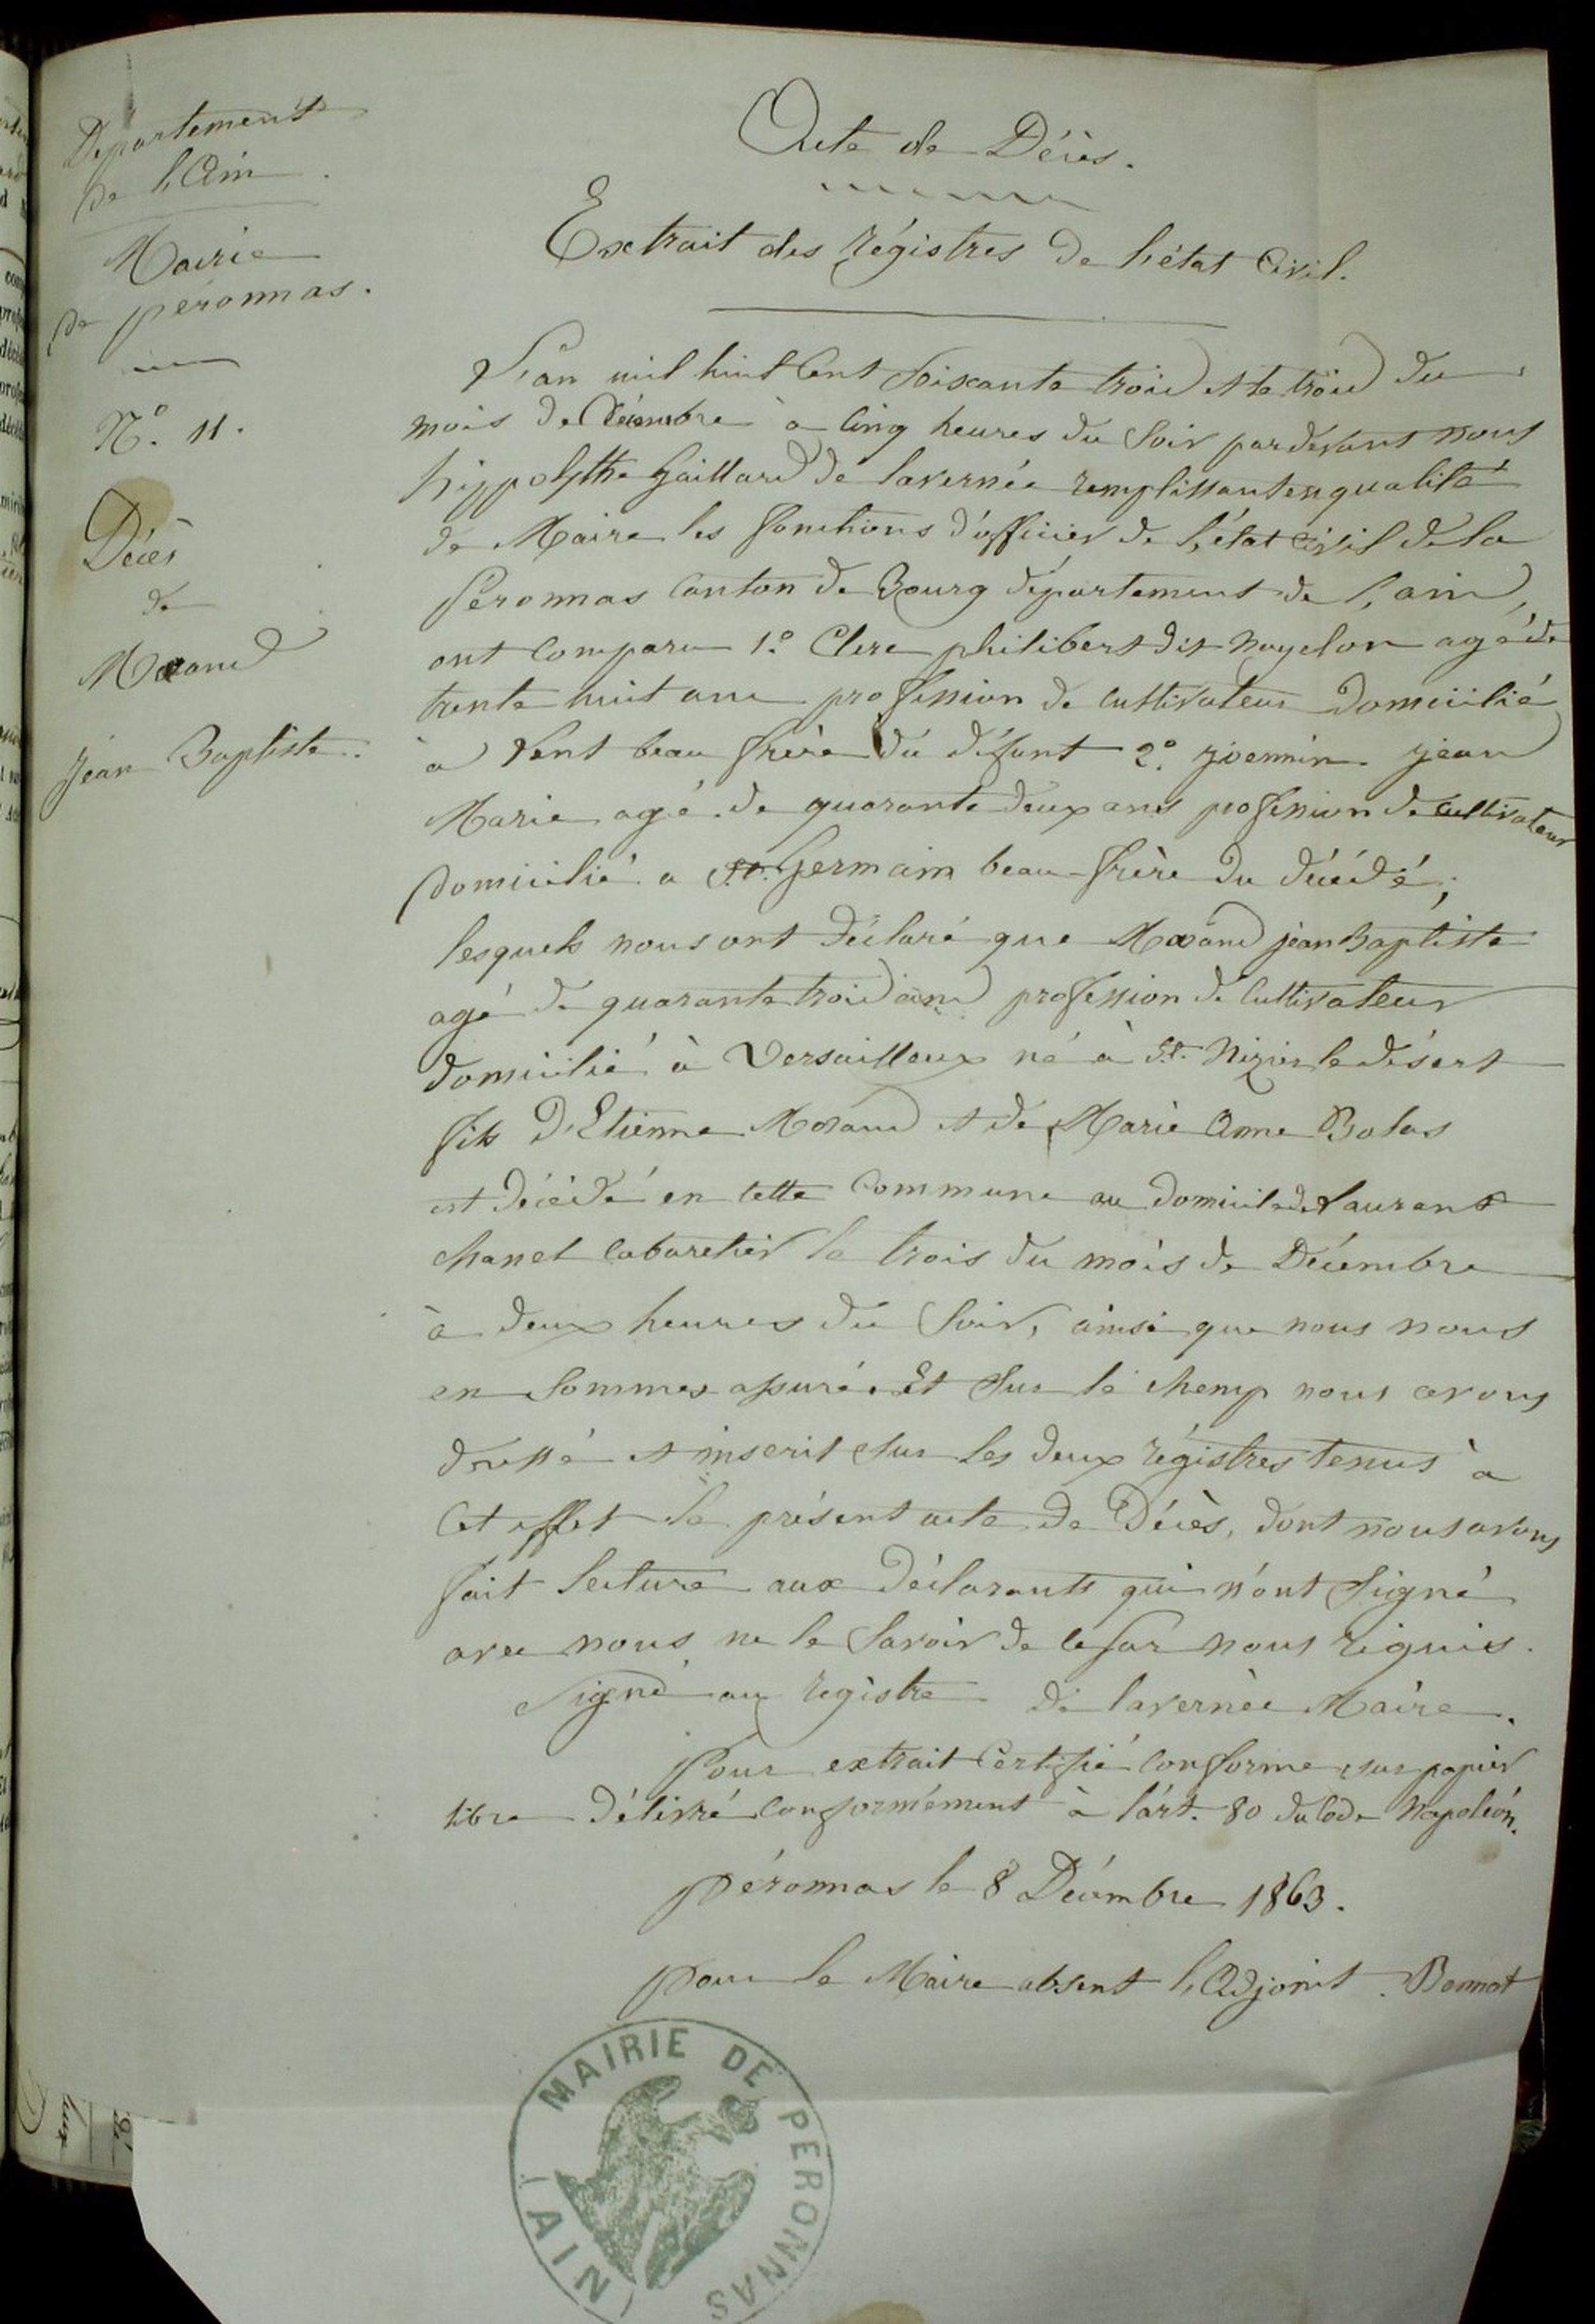 Département
de l'Ain.
Mairie
de péronnas.
N.° 11.
Décès
de
Morand
jean Baptiste.
Acte de Décès.
Extrait des régistres de l'état Civil.
L'an mil huit Cent Soixante trois et le trois du
mois de Décembre à Cinq heures du Soir pardevant nous
hippolythe Gaillard de lavernée remplissant en qualité
de Maire les fonctions d'officier de l'état Civil de la
Péronnas Canton de Bourg département de l'ain,
ont Comparu 1.° Clerc philibert dit noyelon agé de
trente huit ans profession de Cultivateur Domicilié
à Vent beau frère du défunt 2.° jean
Marie agé de quarante deux ans profession de Cultivateur
domicilié a St. Germain beau-frère du décédé;
lesquels nous ont déclaré que Morand jean Baptiste
agé de quarante trois ans profession de Cultivateur
domicilié à Versailleux né à St. Nizier le désert
fils d'Etienne Morand et de Marie Anne Bolas
est décédé en cette Commune au domicile de Laurent
chanel Cabaretier le trois du mois de Décembre
à deux heures du Soir, ainsi que nous nous
en Sommes assuré. Et Sur le champ nous avons
dressé et inscrit sur les deux régistres tenus à
Cet effet le présent acte de Décès, dont nous avons
fait lecture aux Déclarants qui n'ont Signé
avec nous ne le Savoir de ce par nous requis.
Signé au registre De lavernée Maire.
Pour extrait Certifié Conforme sur papier
libre Délivré Conformément à l'art. 80 du Code Napoléon.
péronnas le 8 Décembre 1863.
pour le Maire absent l'Adjoint. Bonnot
MAIRIE DE PERONNAS
(AIN)